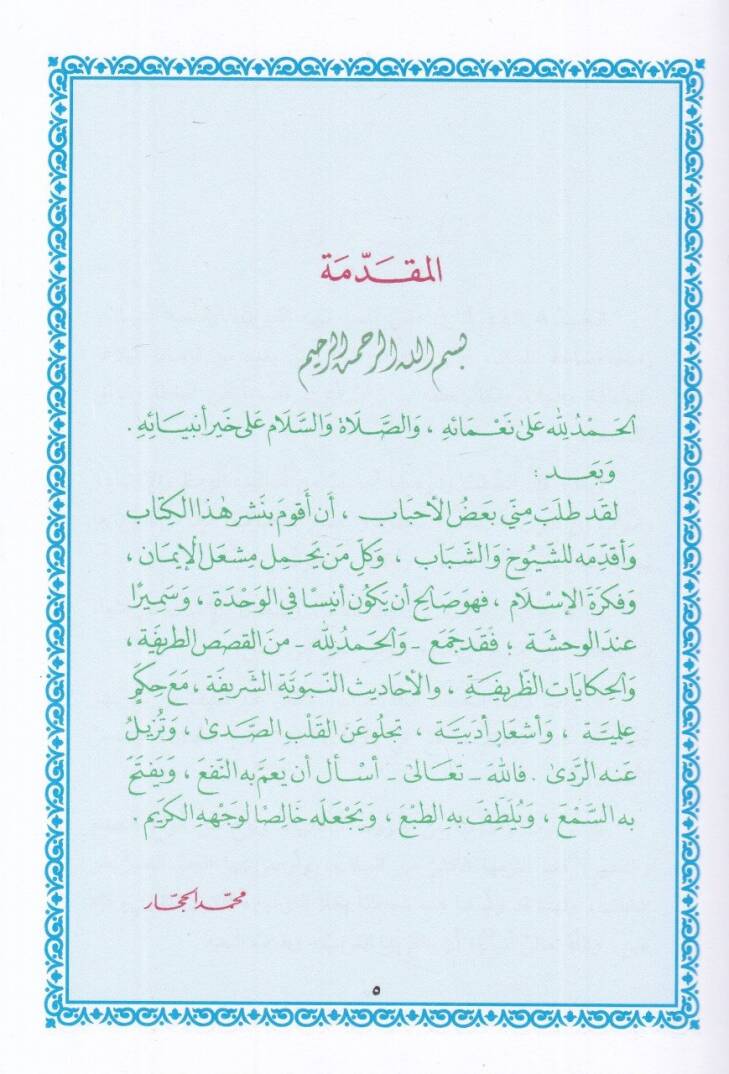 المقَدّمَة
بسم الله الرحمن الرحيم
الحَمْدُ لِلّٰه عَلىٰ نَعْمَائهِ ، وَالصَّلَاة وَالسَّلَام عَلى خَير أنبيَائِهِ .
وَبَعد :
لقَد طلبَ مِنّي بَعضُ الأحبَاب ، أن أقومَ بنَشر هٰذا الكِتَاب
وَأقدِّمَه للشّيُوخ وَالشّبَاب ، وَكلّ مَن يَحمِل مِشعَل الإيمَان ،
وَفكرَة الإسْلَام ، فهوَ صَالح أن يَكُون أنيسًا في الوَحْدَة ، وَسَمِيرًا
عندَ الوحشة ؛ فقَد جمَع - وَالحَمدُ لِلّٰه - منَ القصَص الطريفَة ،
وَالحكايَات الظّريفَة ، والأحَاديث النّبَويَّة الشّريفَة ، مَع حِكَمٍ
علميّة ، وَأشعَار أدَبيَّة ، تجلُو عَن القَلب الصَّدىٰ ، وَتُزيلُ
عَنه الرَّدىٰ . فاللهَ - تعَالىٰ - أسْأل أن يَعمَّ به النّفعَ ، وَيَفتَحَ
به السَّمْعَ ، وَيُلَطِّفَ بهِ الطبْعَ ، وَيَجْعَله خَالِصًا لوَجْههِ الكَريم .
محمّد الحجّار
٥